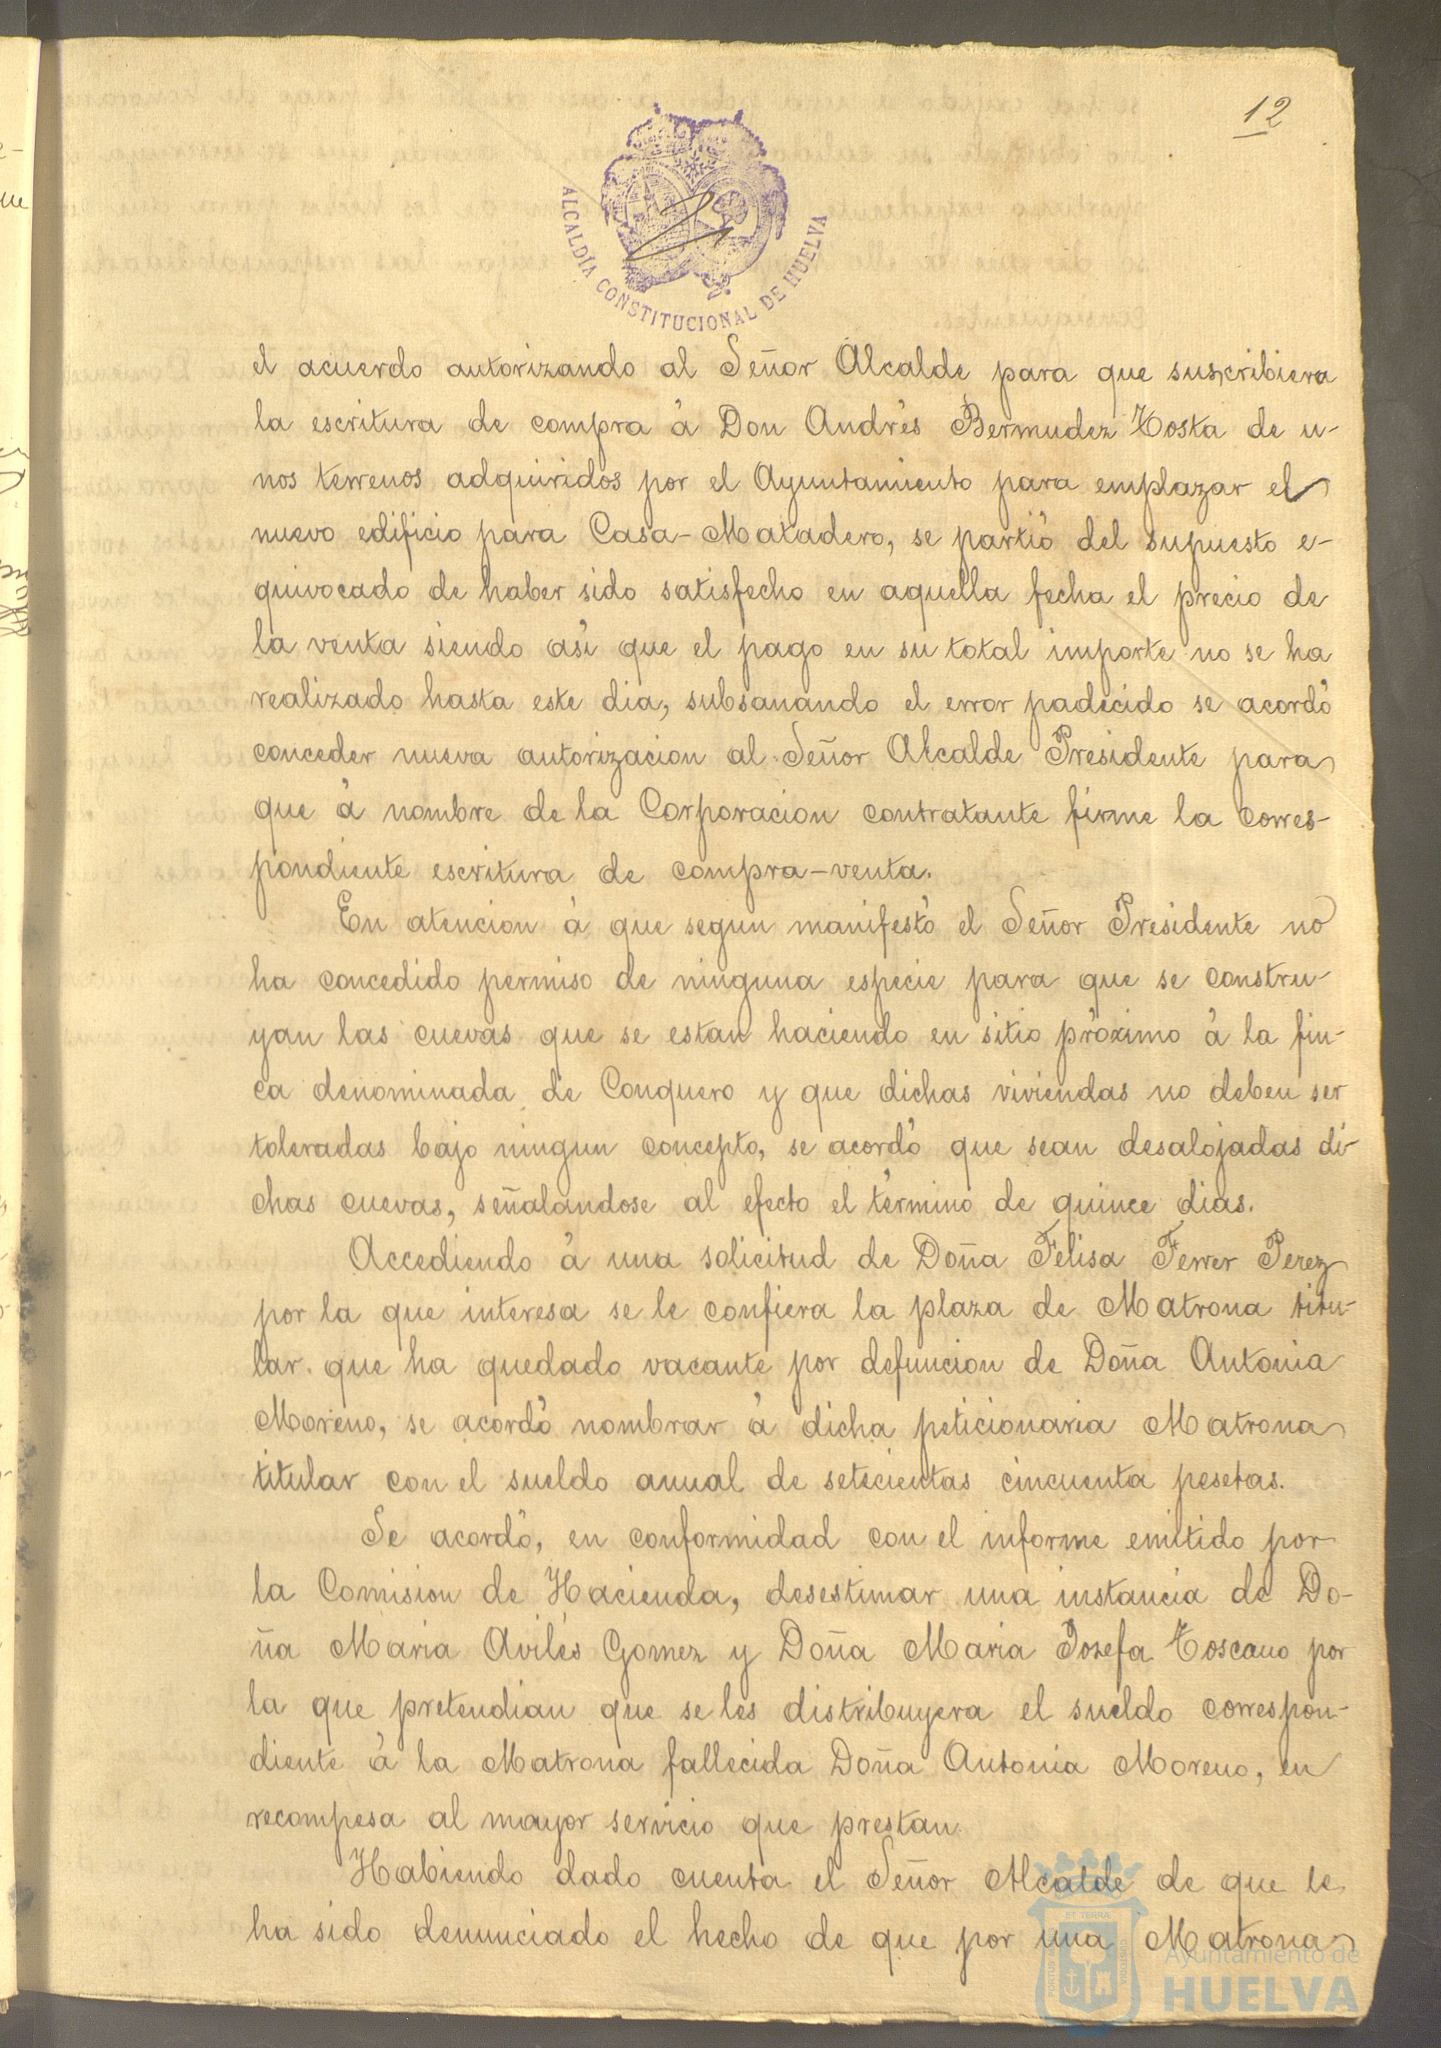 12
ALCALDÍA CONSTITUCIONAL DE HUELVA
el acuerdo autorizando al Señor Alcalde para que suscribiera
la escritura de compra á Don Andrés Bermudez Tosta de u-
nos terrenos adquiridos por el Ayuntamiento para emplazar el
nuevo edificio para Casa-Matadero, se partió del supuesto e-
quivocado de haber sido satisfecho en aquella fecha el precio de
la venta siendo asi que el pago en su total importe no se ha
realizado hasta este dia, subsanando el error padecido se acordó
conceder nueva autorizacion al Señor Alcalde Presidente para
que á nombre de la Corporacion contratante firme la corres-
pondiente escritura de compra-venta.
En atencion á que segun manifestó el Señor Presidente no
ha concedido permiso de ninguna especie para que se constru-
yan las cuevas que se estan haciendo en sitio próximo á la fin-
ca denominada de Conquero y que dichas viviendas no deben ser
toleradas bajo ningun concepto, se acordó que sean desalojadas di-
chas cuevas, señalandose al efecto el término de quince dias.
Accediendo á una solicitud de Doña Felisa Ferrer Perez
por la que interesa se le confiera la plaza de Matrona titu-
lar que ha quedado vacante por defuncion de Doña Antonia
Moreno, se acordó nombrar á dicha peticionaria Matrona
titular con el sueldo anual de setecientas cincuenta pesetas.
Se acordó, en conformidad con el informe emitido por
la Comision de Hacienda, desestimar una instancia de Do-
ña Maria Avilés Gomez y Doña Maria Josefa Toscano por
la que pretendian que se les distribuyera el sueldo correspon-
diente á la Matrona fallecida Doña Antonia Moreno, en
recompesa al mayor servicio que prestan.
Habiendo dado cuenta el Señor Alcalde de que le
ha sido denunciado el hecho de que por una Matrona
Ayuntamiento de
HUELVA